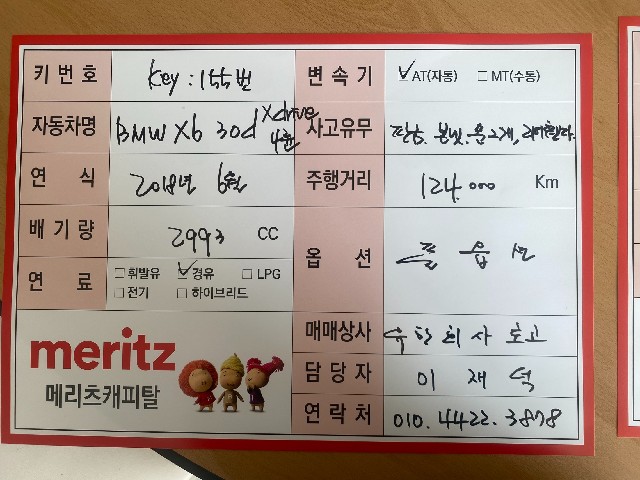 키 번 호 Key : 155번 변 속 기 ☑AT(자동) ☐MT(수동)
자동차명 BMW X6 30d Xdrive 4륜 사고유무 본넷.
연 식 2018년 6월 주행거리 124.000 Km
배 기 량 2993 CC 옵 션 풀 옵션
연 료 ☐휘발유 ☑경유 ☐LPG
☐전기 ☐하이브리드
meritz
메리츠캐피탈
매매상사
담 당 자 이 재 석
연 락 처 010.4422.3878